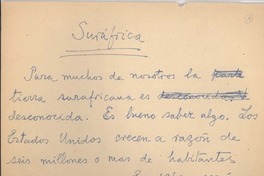 Suráfrica
Para muchos de nosotros la parte
tierra surafricana es desconocida
desconocida. Es bueno saber algo. Los
Estados Unidos crecen a razón de
seis millones o mas de habitantes